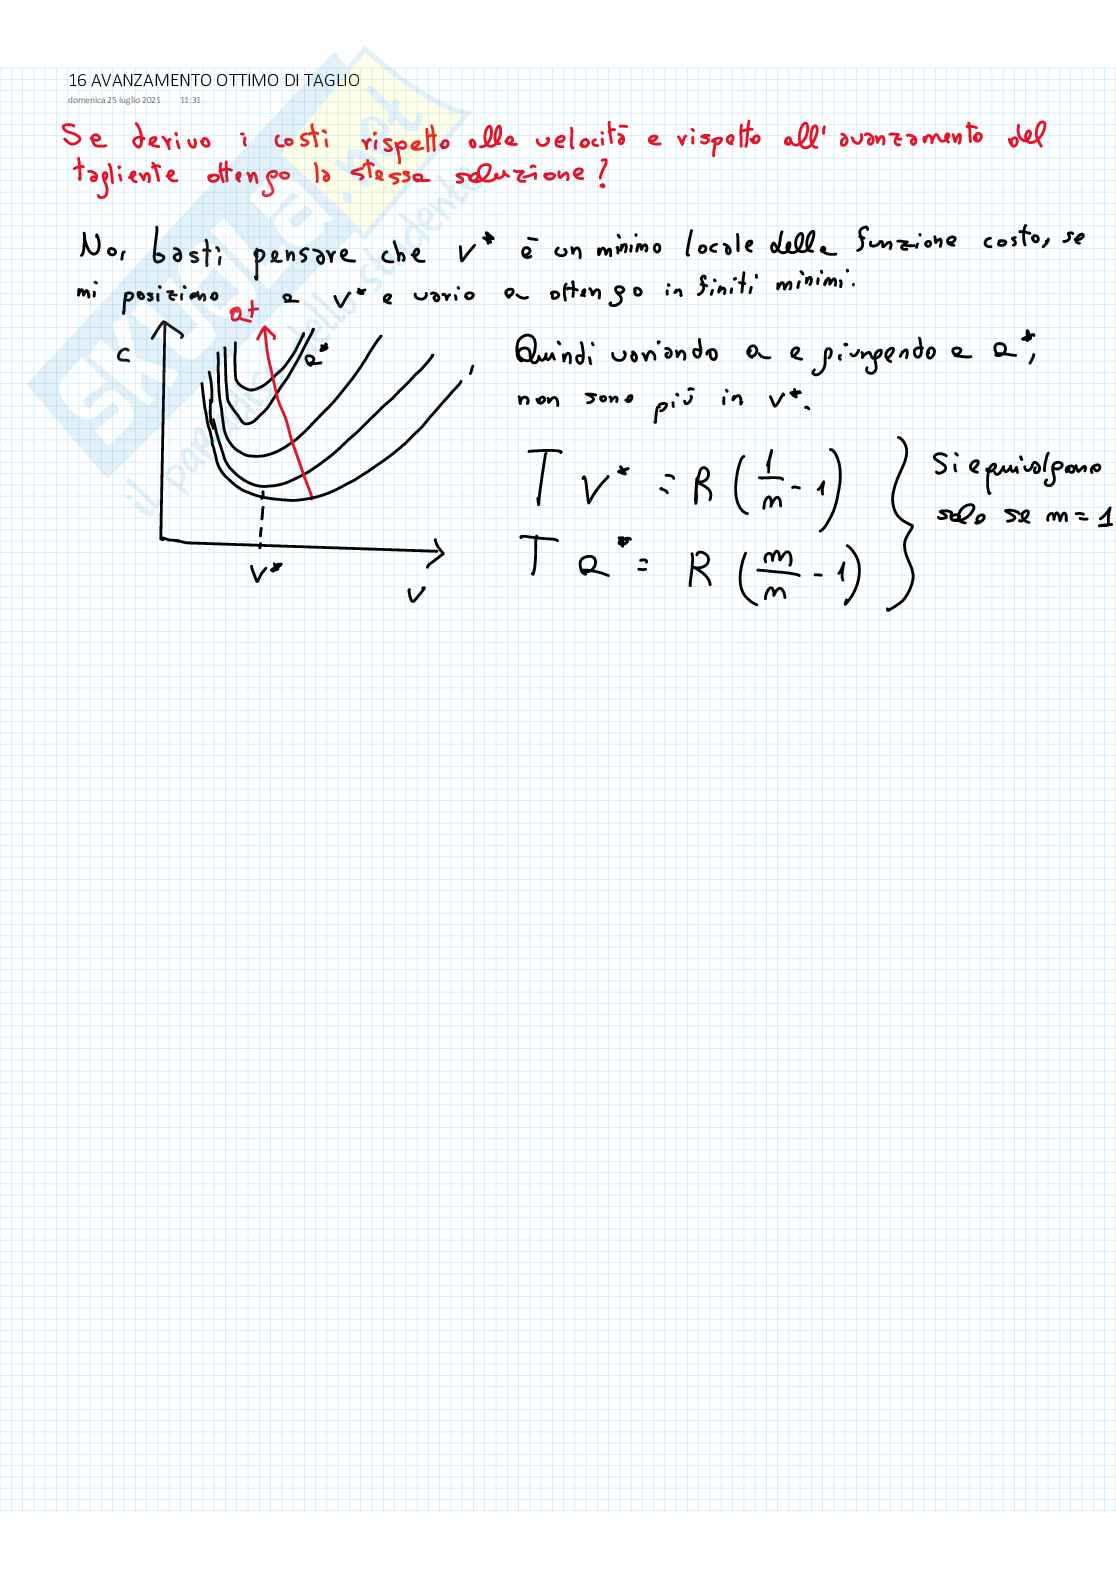 16 AVANZAMENTO OTTIMO DI TAGLIO
domenica 25 luglio 2021 11:31
Se derivo i costi rispetto alla velocità e rispetto all'avanzamento del
tagliente ottengo la stessa soluzione?
No, basti pensare che v* è un minimo locale della funzione costo, se
mi posiziono a v* e vario a ottengo infiniti minimi.
a↑
c
a*
v*
v
Quindi variando a e giungendo a a*,
non sono più in v*.
T v* = R (1/n - 1)
T a* = R (m/n - 1)
Si equivalgono
solo se m = 1
SKUOLA.net